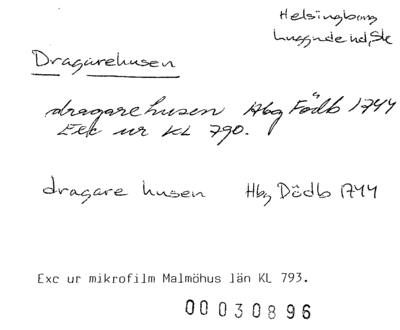 Helsingborg
Luggude hd, Sk
Dragarehusen
dragarehusen Hbg Födb 1744
Exc ur KL 790.
dragare husen Hbg Dödb 1744
Exc ur mikrofilm Malmöhus län KL 793.
00030896